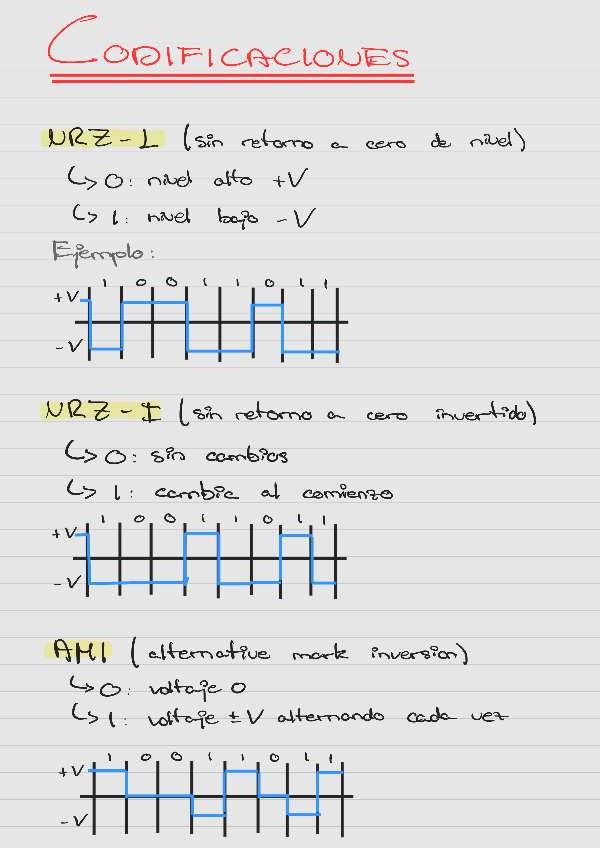 CODIFICACIONES
NRZ-L (sin retorno a cero de nivel)
↳ 0: nivel alto +V
↳ 1: nivel bajo -V
Ejemplo:
1 0 0 1 1 0 1 1
+V
-V
NRZ-I (sin retorno a cero invertido)
↳ 0: sin cambios
↳ 1: cambia al comienzo
1 0 0 1 1 0 1 1
+V
-V
AMI (alternative mark inversion)
↳ 0: voltaje 0
↳ 1: voltaje ±V alternando cada vez
1 0 0 1 1 0 1 1
+V
-V